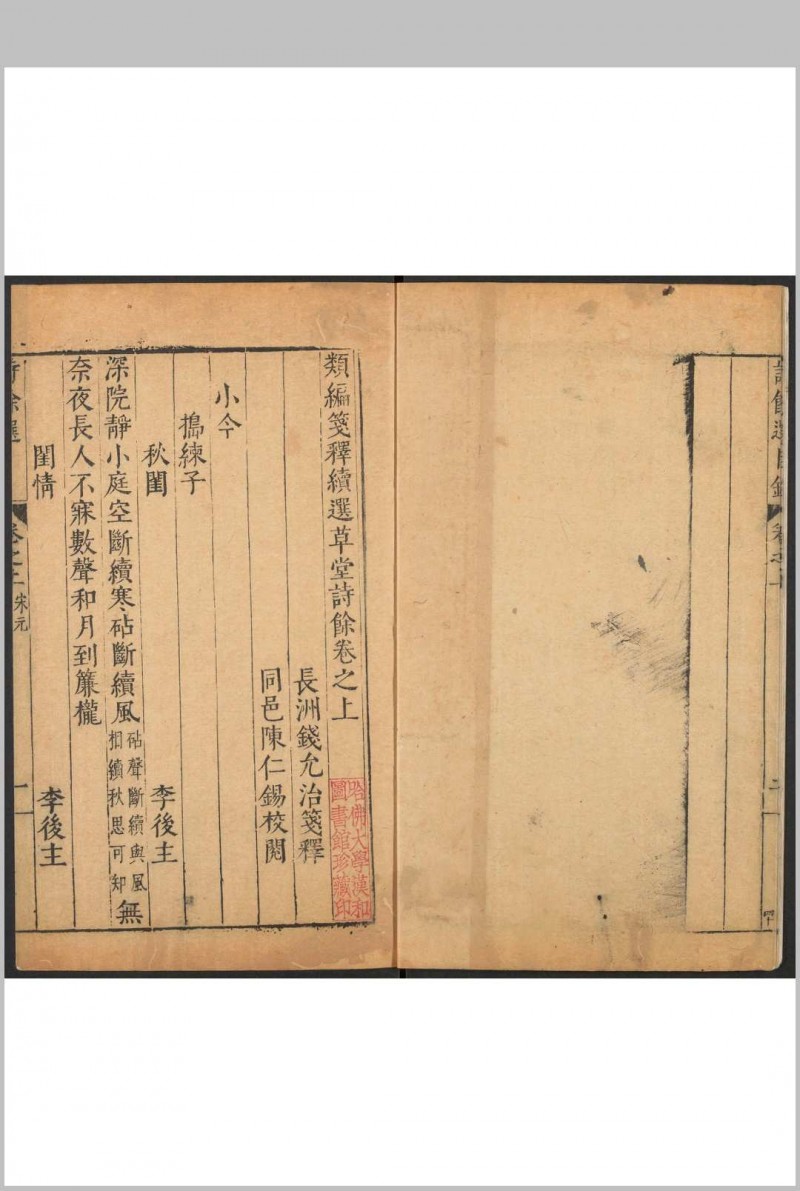 詩餘選目錄
卷之上
二
類編箋釋續選草堂詩餘卷之上
長洲錢允治箋釋
同邑陳仁錫校閱
哈佛大學漢和
圖書館珍藏印
小令
搗練子
秋閨
李後主
深院靜小庭空斷續寒砧斷續風
砧聲斷續與風
相續秋思可知
無
奈夜長人不寐數聲和月到簾櫳
閨情
李後主
詩餘選
卷之上
宋元
一